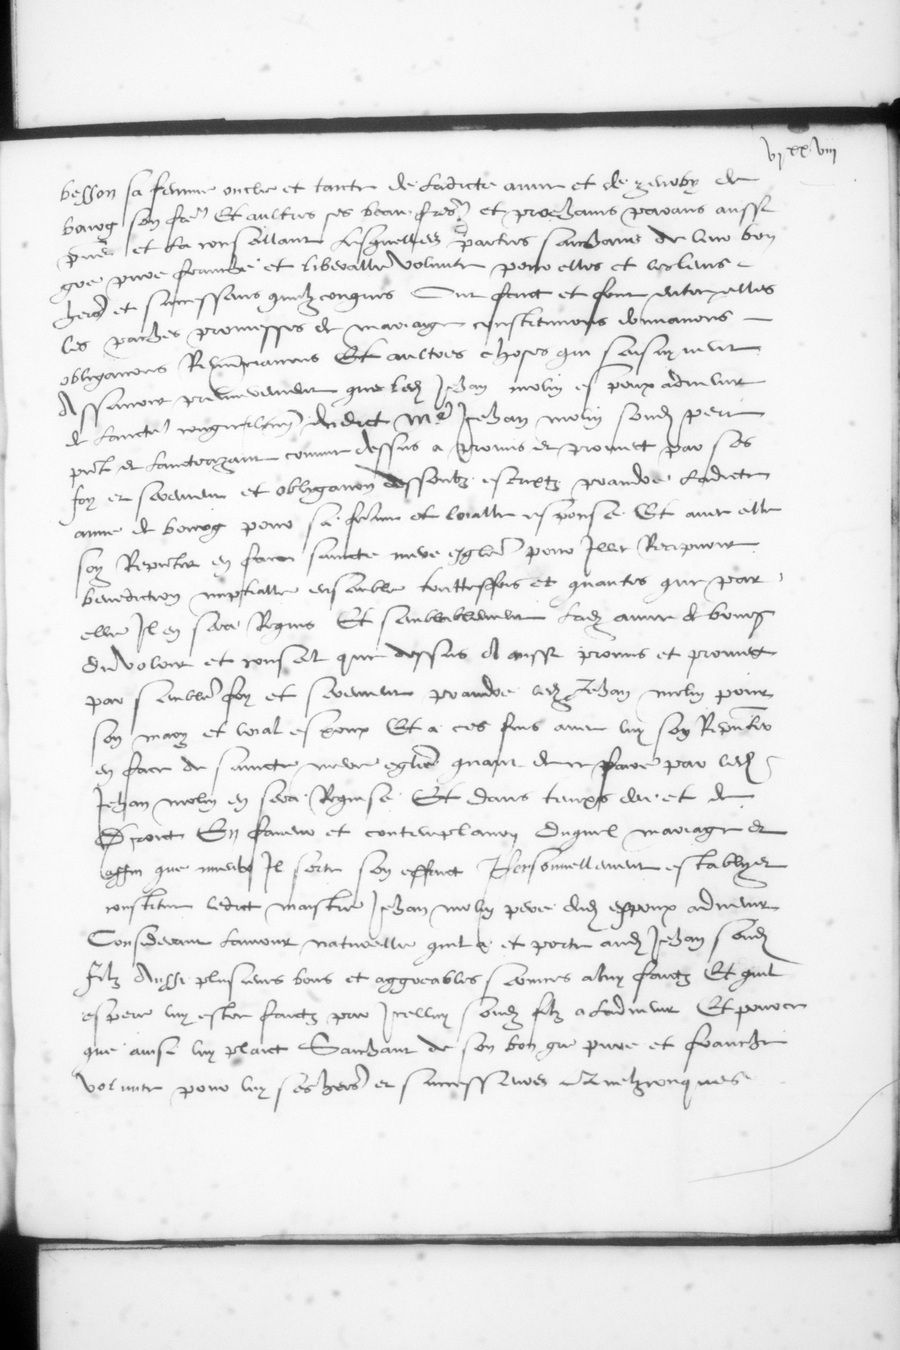 vj xx viii
besson sa femme oncle et tante de ladicte anne et de de
bourg son frere Et aultres ses beau freres et prochains parans aussi
pnts et la conseillant Lesquelles parties saichans de leur bon
gre pure franche et liberalle volunte pour elles et les leurs
hers et successeurs quelzconques Ont faict et font entre elles
les paches promesses de mariage constitutions donnations
obligations Renunciations Et aultres choses qui sensuyvent
Assavoir premierement que led Jehan molin espoux advenir
de laucte dudict Me Jehan molin sond pere
pnt et lauctorizant comme dessus a promis et promect par ses
foy et serement et obligation dessoubz escriptz prandre ladicte
anne de bourg pour sa femme et loialle esponse Et avec elle
soy Repnter en face saincte mere esglise pour Illec Recepvoir
benediction nuptialle ensemble touttesfois et quantes que par
elle Il en sera Requis Et semblablement lad anne de bourg
du voloir et conseil que dessus a aussi promis et promect
par semble foy et serement prandre led Jehan molin pour
son mary et loial espoux Et a ces fins avec luy soy Repnter
en face de saincte mere eglise quant de ce faire par led
Jehan molin en sera Requise Et dans temps deu et de
Droict En faveur et contemplation duquel mariage et
affin que mieulx Il sorte son effect Personnellement estably et
constitue ledict maistre Jehan molin pere dud espoux advenir
Considerant lamour naturelle quil a et porte aud Jehan sond
filz Aussi plusieurs bons et aggreables services a luy faictz Et quil
espere luy estre faictz par Icelluy sond filz a ladvenir Et parce
que ainsi luy plaict Saichant de son bon gre pure et franche
volunte pour luy ses hers et successeurs quelzconques